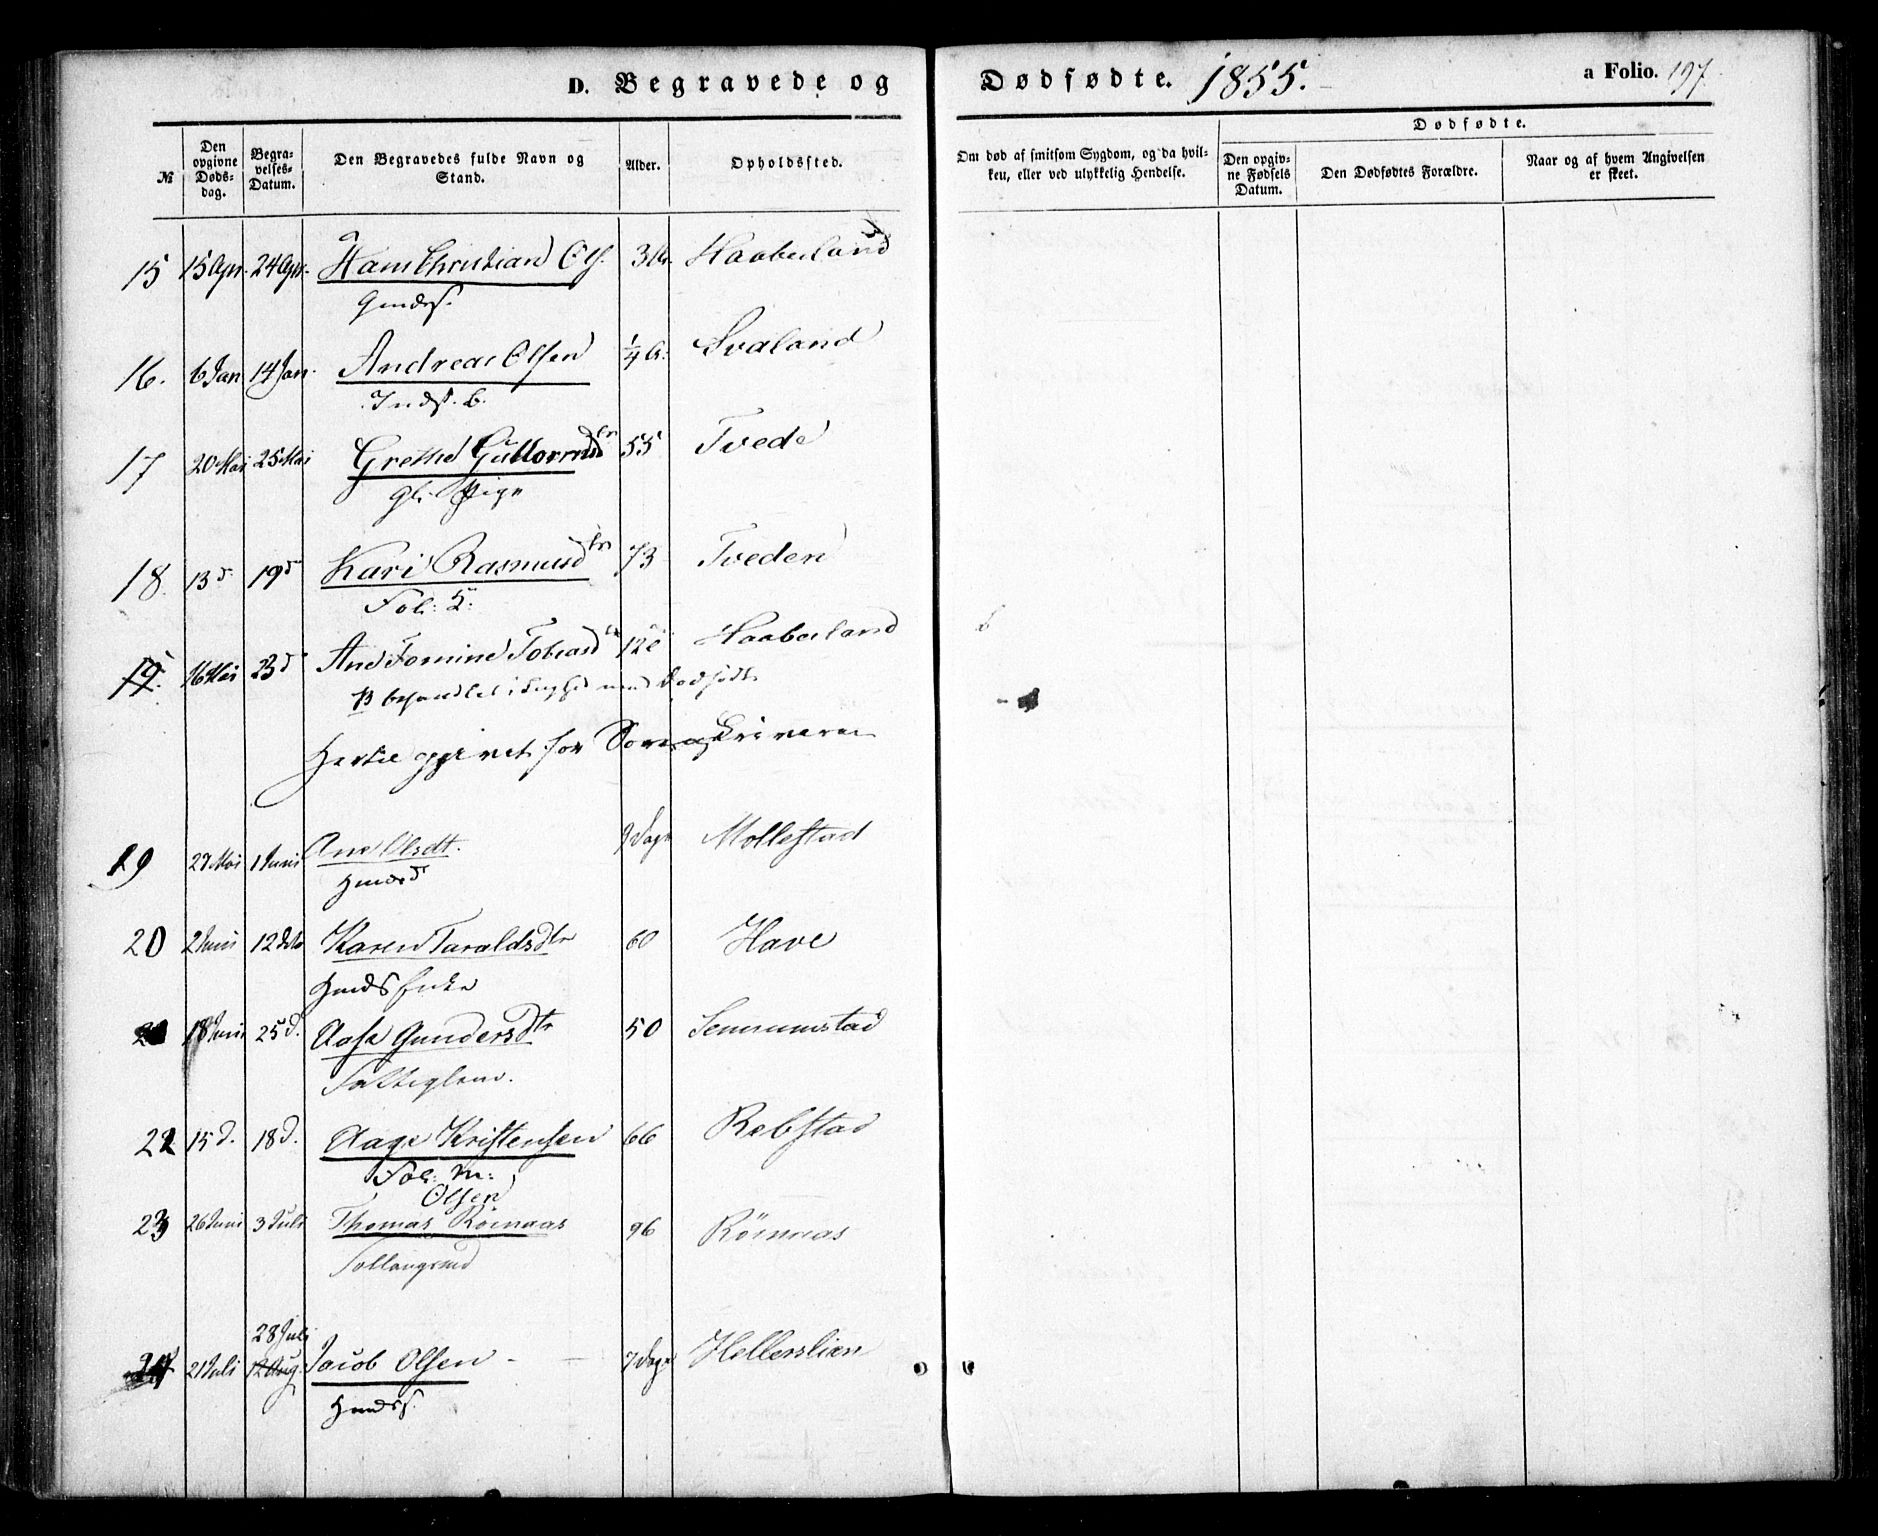 D. Begravede og Dødfødte. 1855. a Folio. 197
№
Den opgivne Døds-dag.
Begra-velses-Datum.
Den Begravedes fulde Navn og Stand.
Alder.
Opholdssted.
Om død af smitsom Sygdom, og da hvil-ken, eller ved ulykkelig Hendelse.
Dødfødte.
Den opgiv-ne Fødsels Datum.
Den Dødfødtes Forældre.
Naar og af hvem Angivelsen er skeet.
15 15 Apr. 24 Apr. Hans Christian Ols. Haaberland
16. 6 Jan 14 Jan. Andreas Olsen 1/4 Svaland
Inds. b.
17 20 Mai 25 Mai Grethe 55 Tvede
gl. Pige
18. 13 d. 19 d Kari Rasmusd 73 Tveden
Fol:
19. 16 Mai 23 d Ane Tomine Tobiasd 12 Haaberland
Hertil opgivet for Sorenskriveren
19 27 Mai 1 Juni Ane Olsdt. 9 Dage Mollestad
20 2 Juni 12 Karen Taraldsdtr 60 Have
Gmds Enke
18 Juni 25 d. Aase Gundersdtr 50 Senumstad
Fattiglem.
22 15 d. 18 d. Aage Kristensen 66 Rebstad
Fol: M:
Olsen
23 26 Juni 3 Juli Thomas Röinaas 96 Röinaas
28 Juli
24 21 Juli 12 Aug. Jacob Olsen - 7 Dage Hellerslien
Gmdss.